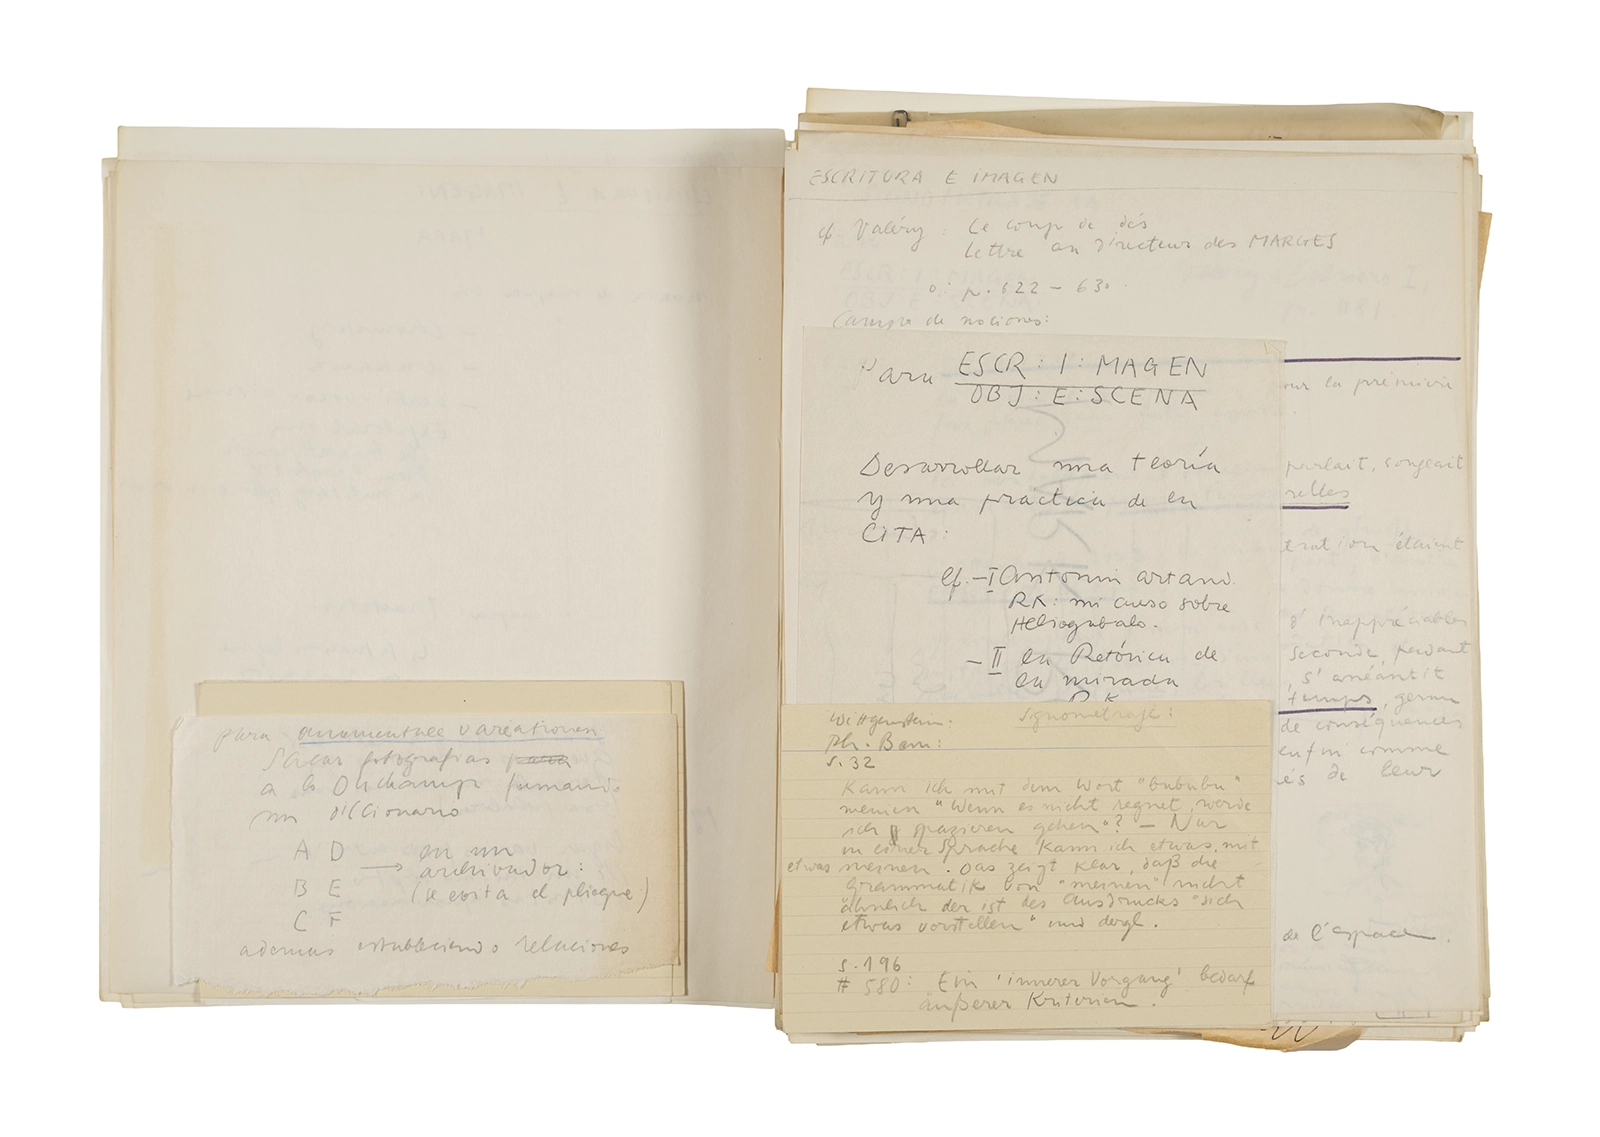 para ornamentale variationen
Sacar fotografias para
a lo Duchamp fumando
un diccionario
A D
B E
C F
→ en un
archivador:
(se evita el pliegue)
ademas estableciendo relaciones
ESCRITURA E IMAGEN
cf Valéry: Le coup de dés
Lettre au Directeur des MARGES
p. 622 – 630.
Campo de nociones:
Para ESCR: I: MAGEN
OBJ: E: SCENA
Desarrollar una teoría
y una practica de la
CITA:
cf. – I Antonin Artaud.
RK: mi curso sobre
Heliogabalo.
– II la Retórica de
la mirada
RK
Wittgenstein: Signometraje:
Ph. Bem:
S. 32
Kann ich mit dem Wort "bububu"
meinen "Wenn es nicht regnet, werde
ich spazieren gehen"? – Nur
in einer Sprache kann ich etwas mit
etwas meinen. Das zeigt klar, daß die
Grammatik von "meinen" nicht
ähnlich der ist des Ausdrucks "sich
etwas vorstellen" und dergl.
S. 196
# 580: Ein 'innerer Vorgang' bedarf
äußerer Kriterien.
our la première
parlait, songeait
relles
tration, étaient
d'inappréciables
seconde, pendant
s'anéantit
temps, germe
de conséquences
enfin comme
és de leur
de l'espace.